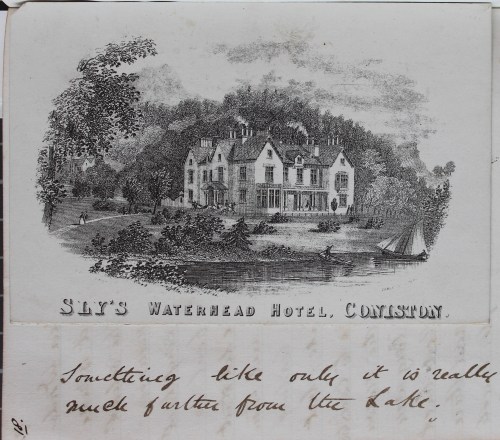 SLY'S WATERHEAD HOTEL, CONISTON.
Something like only it is really
much further from the Lake.